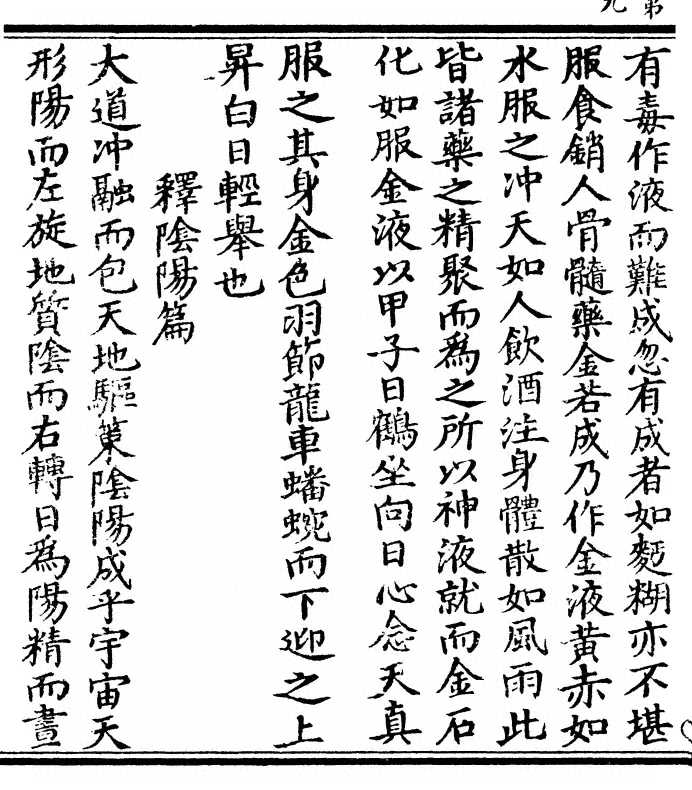 有毒作液而難成忽有成者如麪糊亦不堪
服食銷人骨髓藥金若成乃作金液黃赤如
水服之冲天如人飲酒注身體散如風雨此
皆諸藥之精聚而為之所以神液就而金石
化如服金液以甲子日鶴坐向日心念天真
服之其身金色羽節龍車蟠蜿而下迎之上
昇白日輕舉也
釋陰陽篇
大道冲融而包天地驅策陰陽成乎宇宙天
形陽而左旋地質陰而右轉日為陽精而晝